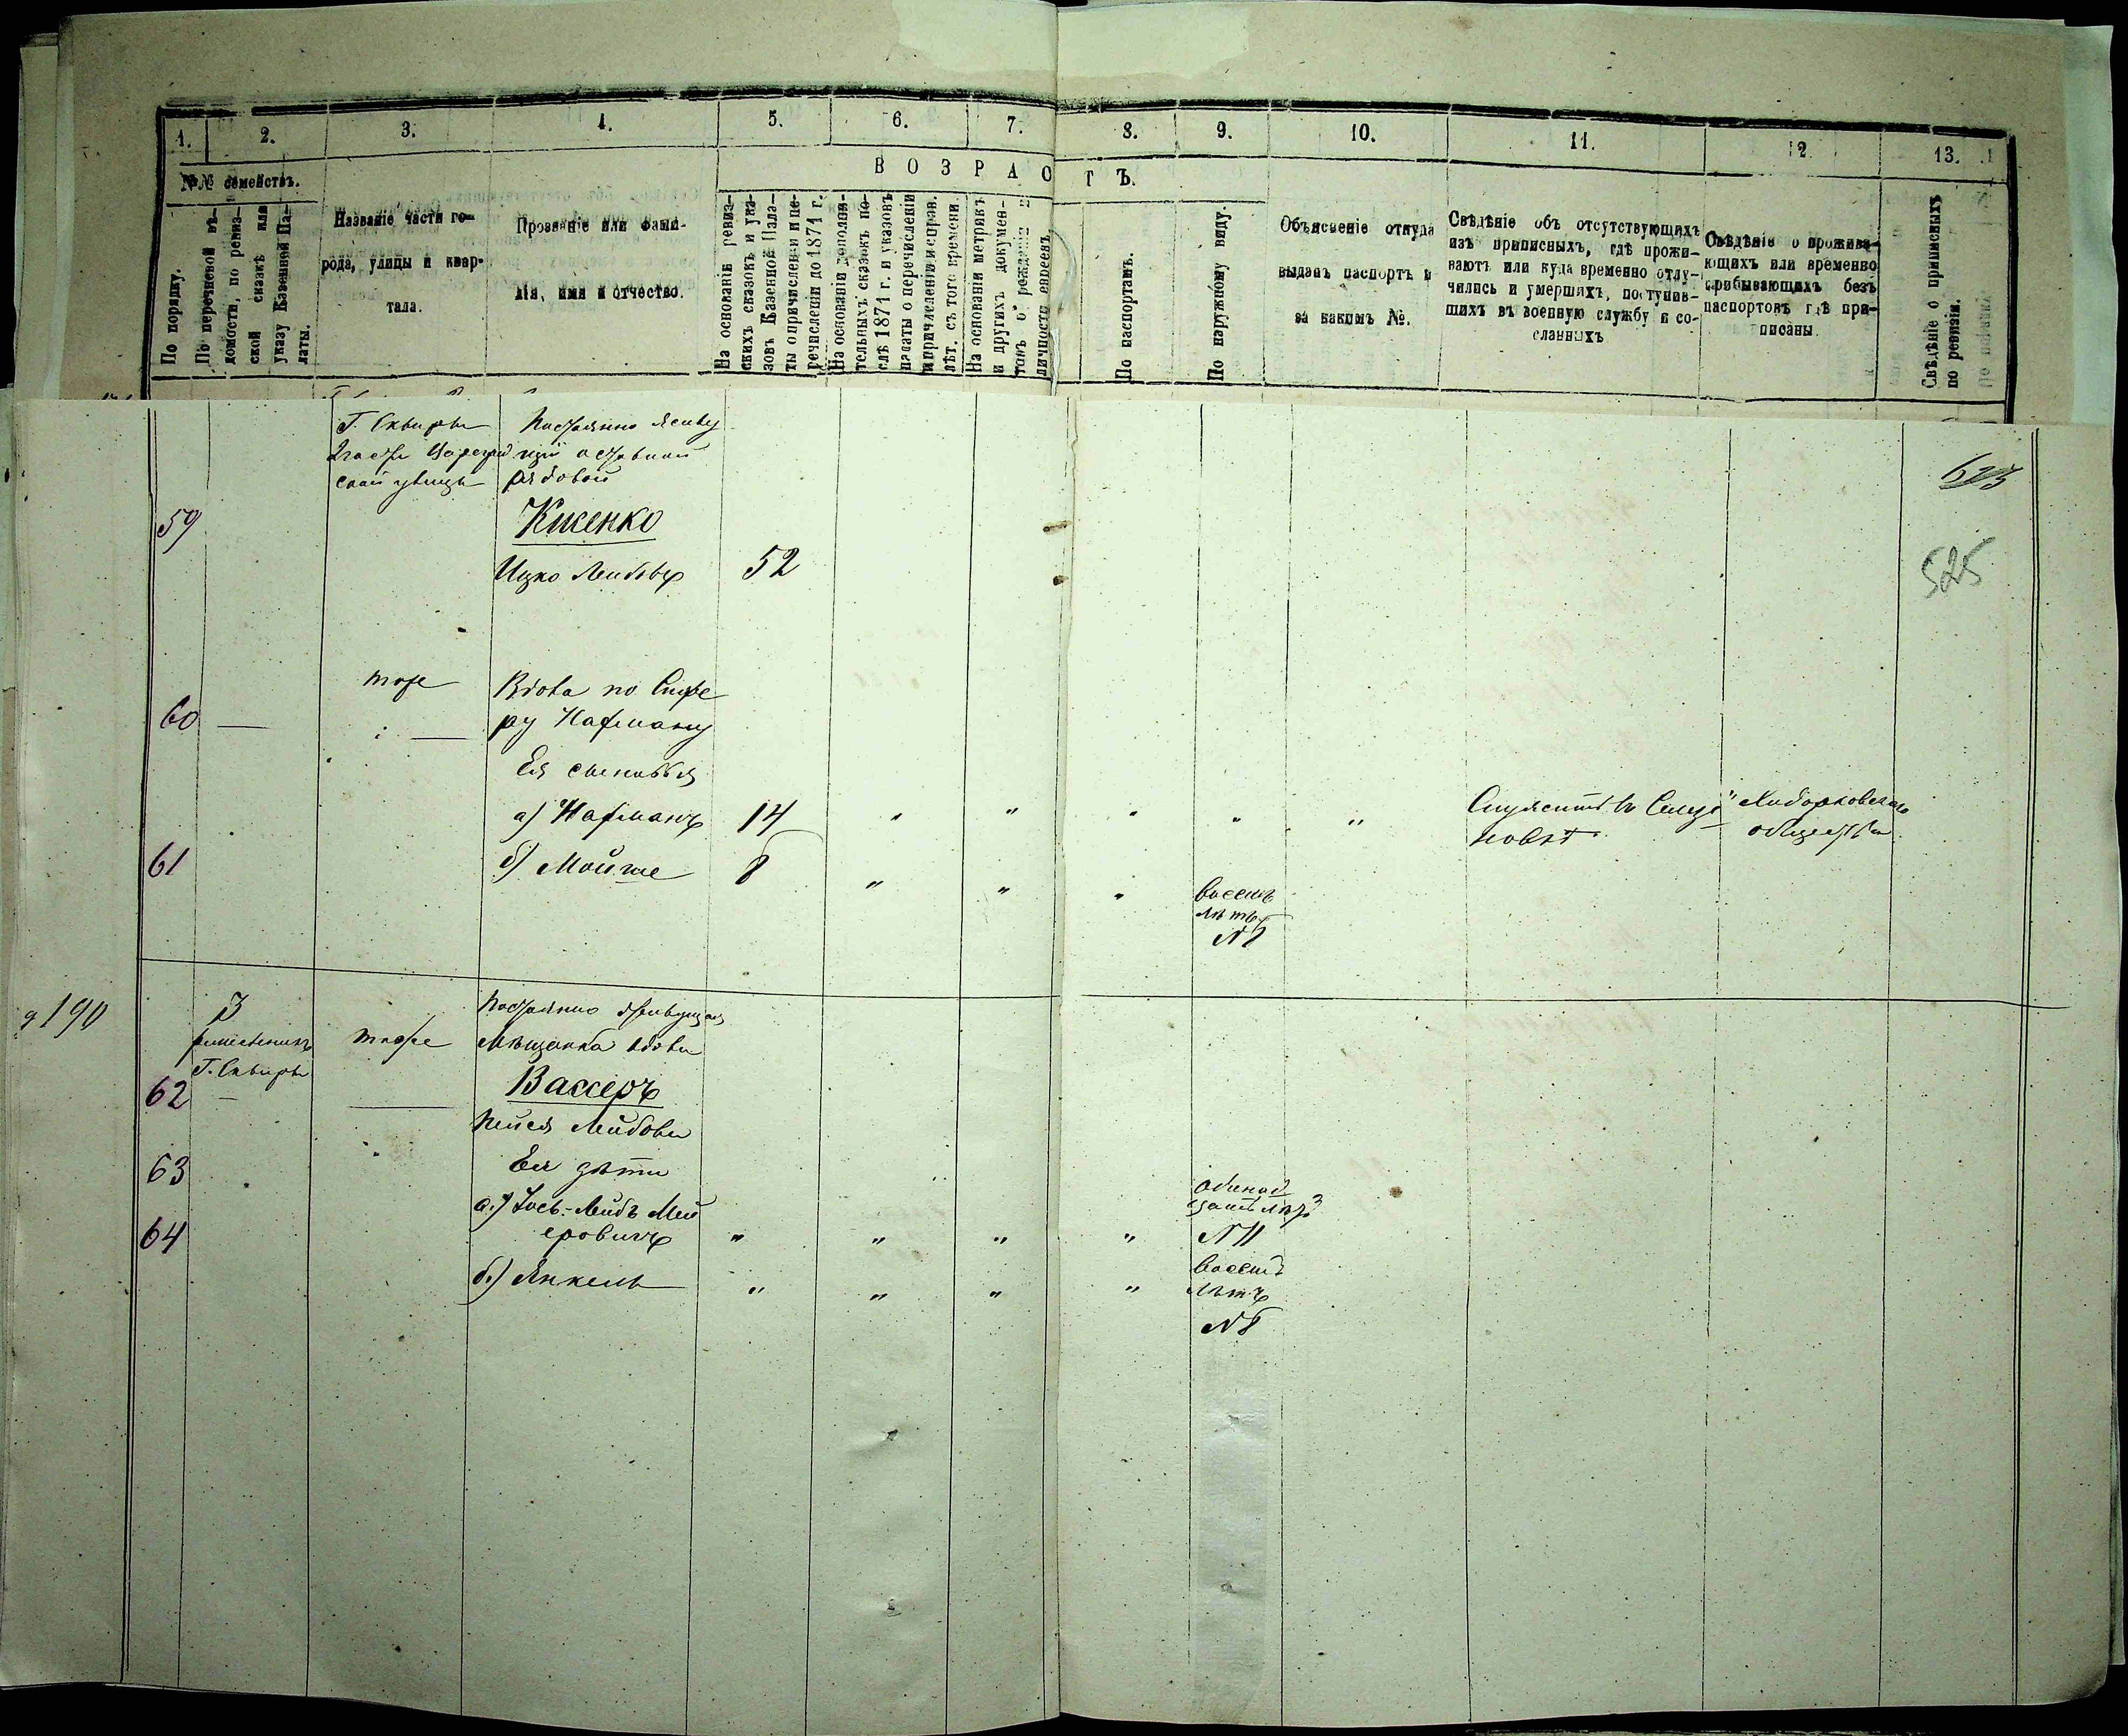 1.
2.
3.
4.
5.
6.
7.
8.
9.
10.
11.
12
13.
№№ семействъ.
ВОЗРАСТЪ.
По порядку.
По перечневой вѣ-
домости, по ревиз-
ской сказкѣ или
указу Казенной Па-
латы.
Названіе части го-
рода, улицы и квар-
тала.
Прозваніе или фами-
лія, имя и отчество.
На основаніи ревиз-
скихъ сказокъ и ука-
зовъ Казенной Пала-
ты о причисленіи и пе-
речисленіи до 1871 г.
На основаніи дополни-
тельныхъ сказокъ по-
слѣ 1871 г. и указовъ
палаты о перечисленіи
и причисленіи и справ.
лѣт. съ того времени.
На основаніи метрикъ
и другихъ докумен-
товъ о рожденіи и
личности евреевъ.
По паспортамъ.
По наружному виду.
Объясненіе откуда
выданъ паспортъ и
за какимъ №.
Свѣдѣніе объ отсутствующихъ
изъ приписныхъ, гдѣ прожи-
ваютъ или куда временно отлу-
чились и умершихъ, поступив-
шихъ въ военную службу и со-
сланныхъ
Свѣдѣніе о прожива-
ющихъ или временно
прибывающихъ безъ
паспортовъ гдѣ при-
писаны.
Свѣдѣніе о приписныхъ
по ревизіи.
Г. Сквиры Постоянно живу
2 части щій отставной
ской улицы рядовой
525
59 Кисенко
Ицко Лейбовъ 52
525
тоже Вдова по
60 — — ру Нафману
Ея сыновья
а) Нафманъ 14 " " " " " Служитъ въ Ходорковскаго
общества
61 б) Мойше 8 " " " восемь
лѣтъ
№ 8
190 3 Постоянно живущая
тоже Мѣщанка вдова
Г. Сквиры
62 — — Вассеръ
Пейся Лейбова
63 Ея дѣти
а.) Іось-Лейбъ Мей одинад
цать лѣтъ
64 еровичъ " " " " № 11
б.) Янкель " " " " восемь
лѣтъ
№ 8